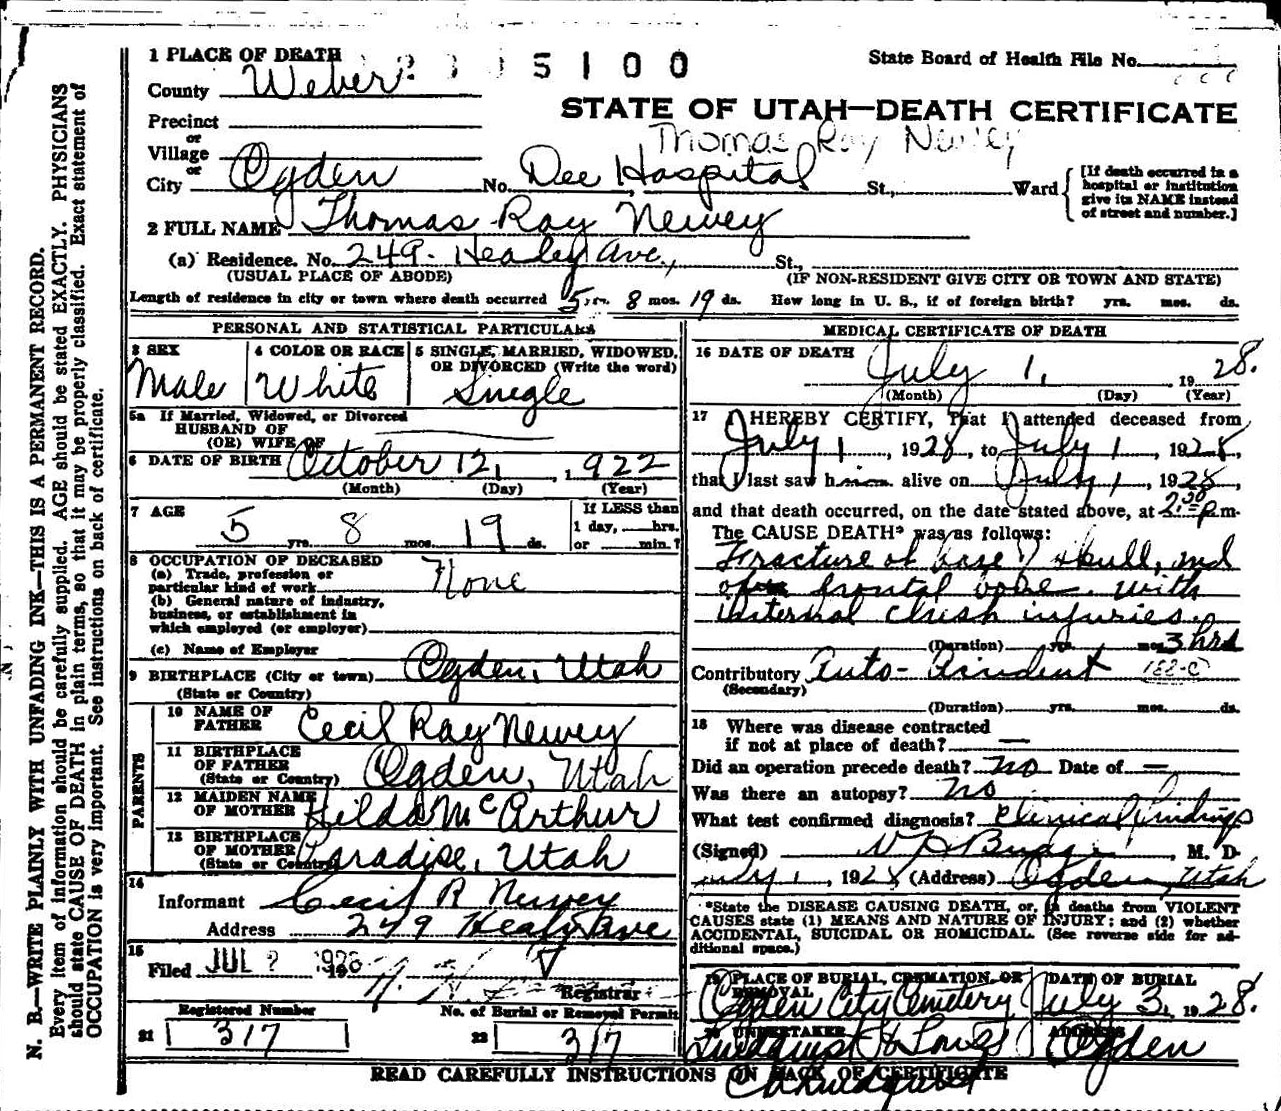 1 PLACE OF DEATH
5 1 0 0
State Board of Health File No.
County Weber
STATE OF UTAH—DEATH CERTIFICATE
Precinct
Thomas Ray Newey
or
Village
or
City Ogden No. Dee Hospital St., Ward
[If death occurred in a hospital or institution give its NAME instead of street and number.]
2 FULL NAME Thomas Ray Newey
(a) Residence. No. 249 Healey Ave., St.,
(USUAL PLACE OF ABODE) (IF NON-RESIDENT GIVE CITY OR TOWN AND STATE)
Length of residence in city or town where death occurred 5 yrs. 8 mos. 19 ds. How long in U. S., if of foreign birth? yrs. mos. ds.
PERSONAL AND STATISTICAL PARTICULARS
3 SEX Male
4 COLOR OR RACE White
5 SINGLE, MARRIED, WIDOWED, OR DIVORCED (Write the word) Single
5a If Married, Widowed, or Divorced
HUSBAND OF
(OR) WIFE OF
6 DATE OF BIRTH October 12, 1922
(Month) (Day) (Year)
7 AGE
5 yrs. 8 mos. 19 ds.
If LESS than
1 day, hrs.
or min.?
8 OCCUPATION OF DECEASED
(a) Trade, profession or
particular kind of work None
(b) General nature of industry,
business, or establishment in
which employed (or employer)
(c) Name of Employer
9 BIRTHPLACE (City or town) Ogden, Utah
(State or Country)
PARENTS
10 NAME OF
FATHER Cecil Ray Newey
11 BIRTHPLACE
OF FATHER Ogden, Utah
(State or Country)
12 MAIDEN NAME
OF MOTHER Hilda McArthur
13 BIRTHPLACE
OF MOTHER Paradise, Utah
(State or Country)
14
Informant Cecil R Newey
Address 249 Healy Ave
15
Filed JUL 1928
Registrar
Registered Number No. of Burial or Removal Permit
21 317 22 317
MEDICAL CERTIFICATE OF DEATH
16 DATE OF DEATH July 1, 1928.
(Month) (Day) (Year)
17 I HEREBY CERTIFY, That I attended deceased from
July 1, 1928, to July 1, 1928,
that I last saw him alive on July 1, 1928,
and that death occurred, on the date stated above, at 2:30 p.m.
The CAUSE DEATH* was as follows:
Fracture of base of skull, and
of frontal bone. with
internal chest injuries.
(Duration) yrs. mos. 3 hrs
Contributory Auto-Accident 188-C
(Secondary)
(Duration) yrs. mos. ds.
18 Where was disease contracted
if not at place of death? —
Did an operation precede death? No Date of —
Was there an autopsy? No
What test confirmed diagnosis? Clinical findings
(Signed) , M. D.
July 1, 1928 (Address) Ogden, Utah
*State the DISEASE CAUSING DEATH, or, in deaths from VIOLENT
CAUSES state (1) MEANS AND NATURE OF INJURY; and (2) whether
ACCIDENTAL, SUICIDAL OR HOMICIDAL. (See reverse side for ad-
ditional space.)
19 PLACE OF BURIAL, CREMATION, OR REMOVAL Ogden City Cemetery
DATE OF BURIAL July 3, 1928.
20 UNDERTAKER Lindquist & Sons
ADDRESS Ogden
READ CAREFULLY INSTRUCTIONS ON BACK OF CERTIFICATE
N. B.—WRITE PLAINLY WITH UNFADING INK—THIS IS A PERMANENT RECORD.
Every item of information should be carefully supplied. AGE should be stated EXACTLY. PHYSICIANS
should state CAUSE OF DEATH in plain terms, so that it may be properly classified. Exact statement of
OCCUPATION is very important. See instructions on back of certificate.